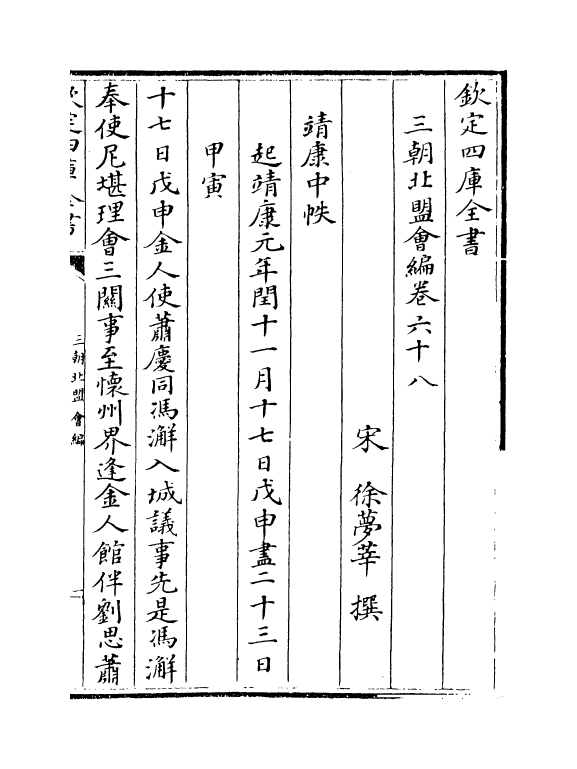 欽定四庫全書
三朝北盟會編卷六十八
宋 徐夢莘 撰
靖康中帙
起靖康元年閏十一月十七日戊申盡二十三日
甲寅
十七日戊申金人使蕭慶同馮澥入城議事先是馮澥
奉使尼堪理會三關事至懷州界逢金人館伴劉思蕭
欽定四庫全書
三朝北盟會編
一